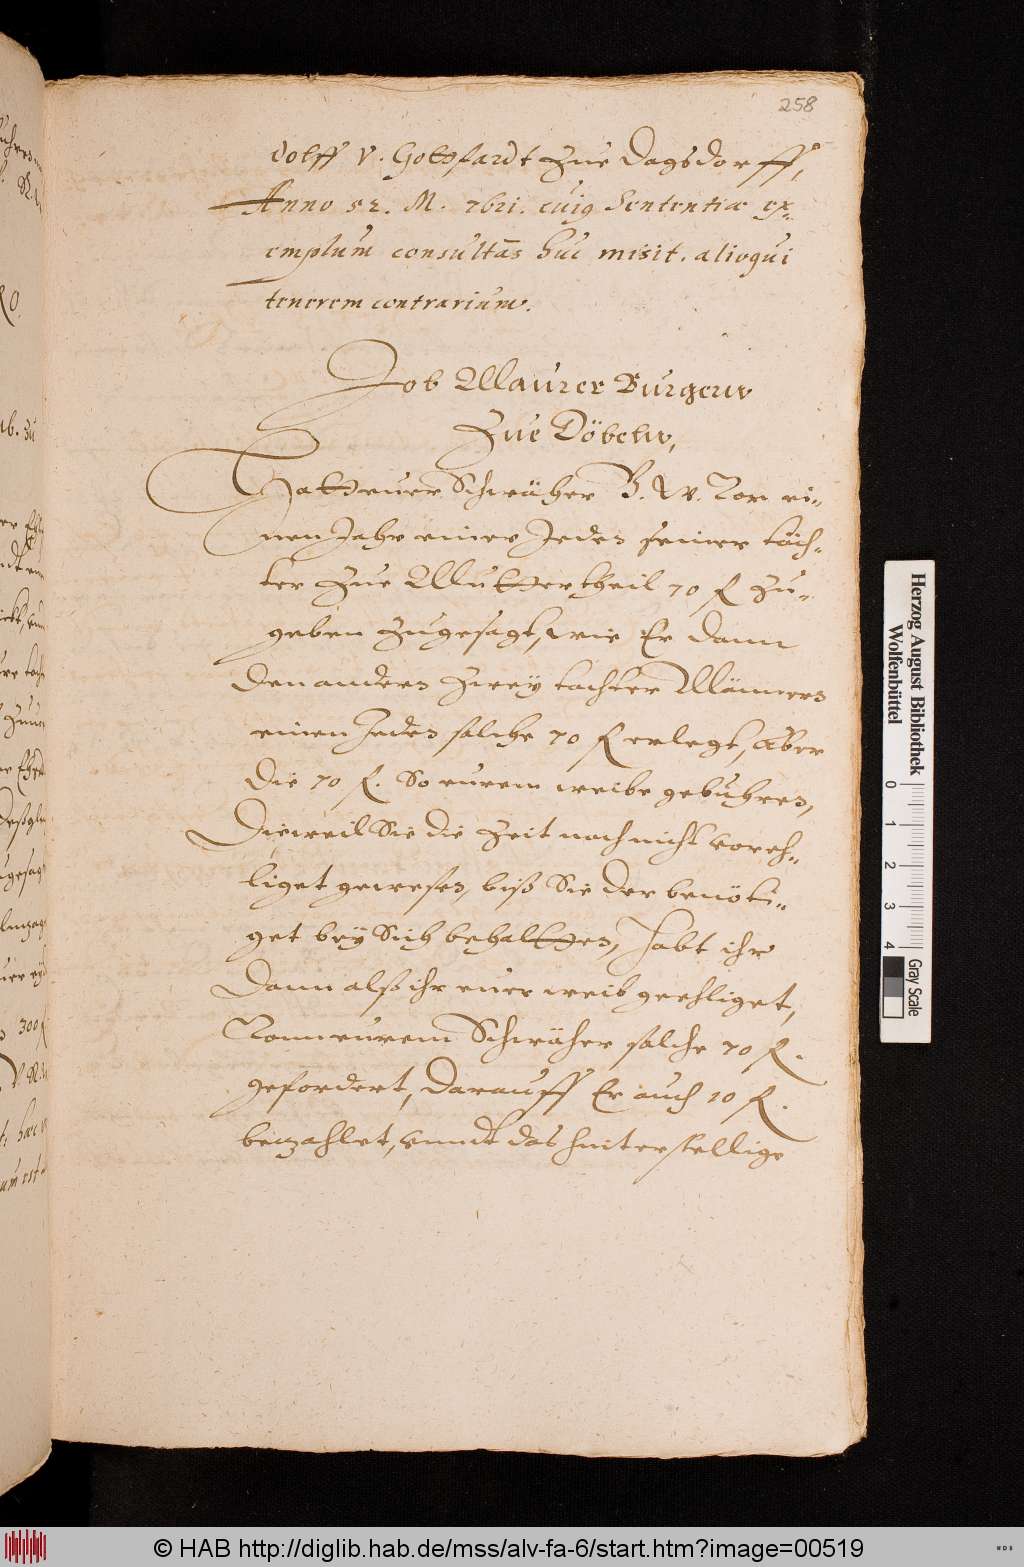 258
dolff V. Gotthardt Zue Dagsdorff,
Anno 52. M. 7bri. cuig Sententiæ ex-
emplum consultās huc misit. alioqui
tenerem contrarium.
Job Maurer Burgern
Zue Döbeln,
Hatt euer Schwäher B. W. Vor ei-
nen Jahr einer Jeden seiner töch-
ter Zue Mutter theil 70 fl Zu-
geben Zugesagt, wie Er dann
den anderen Zwey tochter Männern
einen Jeden solche 70 fl erlegt, Aber
die 70 fl. So eurem weibe gebuhren,
Dieweil Sie die Zeit noch nicht voreh-
liget gewesen, biß Sie der benöti-
get bey Sich behaltten, Habt ihr
Dann alß ihr euer weib geehliget,
Vonn eurem Schwäher solche 70 fl.
gefordert, Darauff Er auch 10 fl.
bezahlet, vnndt das hinterstellige
Herzog August Bibliothek
Wolfenbüttel
0 1 2 3 4
Gray Scale
© HAB http://diglib.hab.de/mss/alv-fa-6/start.htm?image=00519